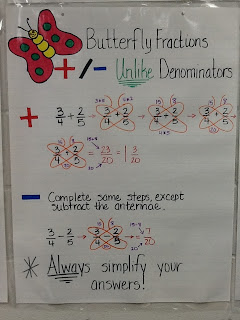 Butterfly Fractions
+/- Unlike Denominators
+ 3/4 + 2/5 → 3x5 3/4 + 2/5 5x2 → 15 8 3/4 + 2/5 4x5 → 15 8 3/4 + 2/5 20
15 8 3/4 + 2/5 20 = 15+8 23/20 = 1 3/20
- Complete same steps, except
subtract the antennae.
3/4 - 2/5 → 15 8 3/4 - 2/5 20 → 15-8 = 7/20
* Always simplify your
answers!